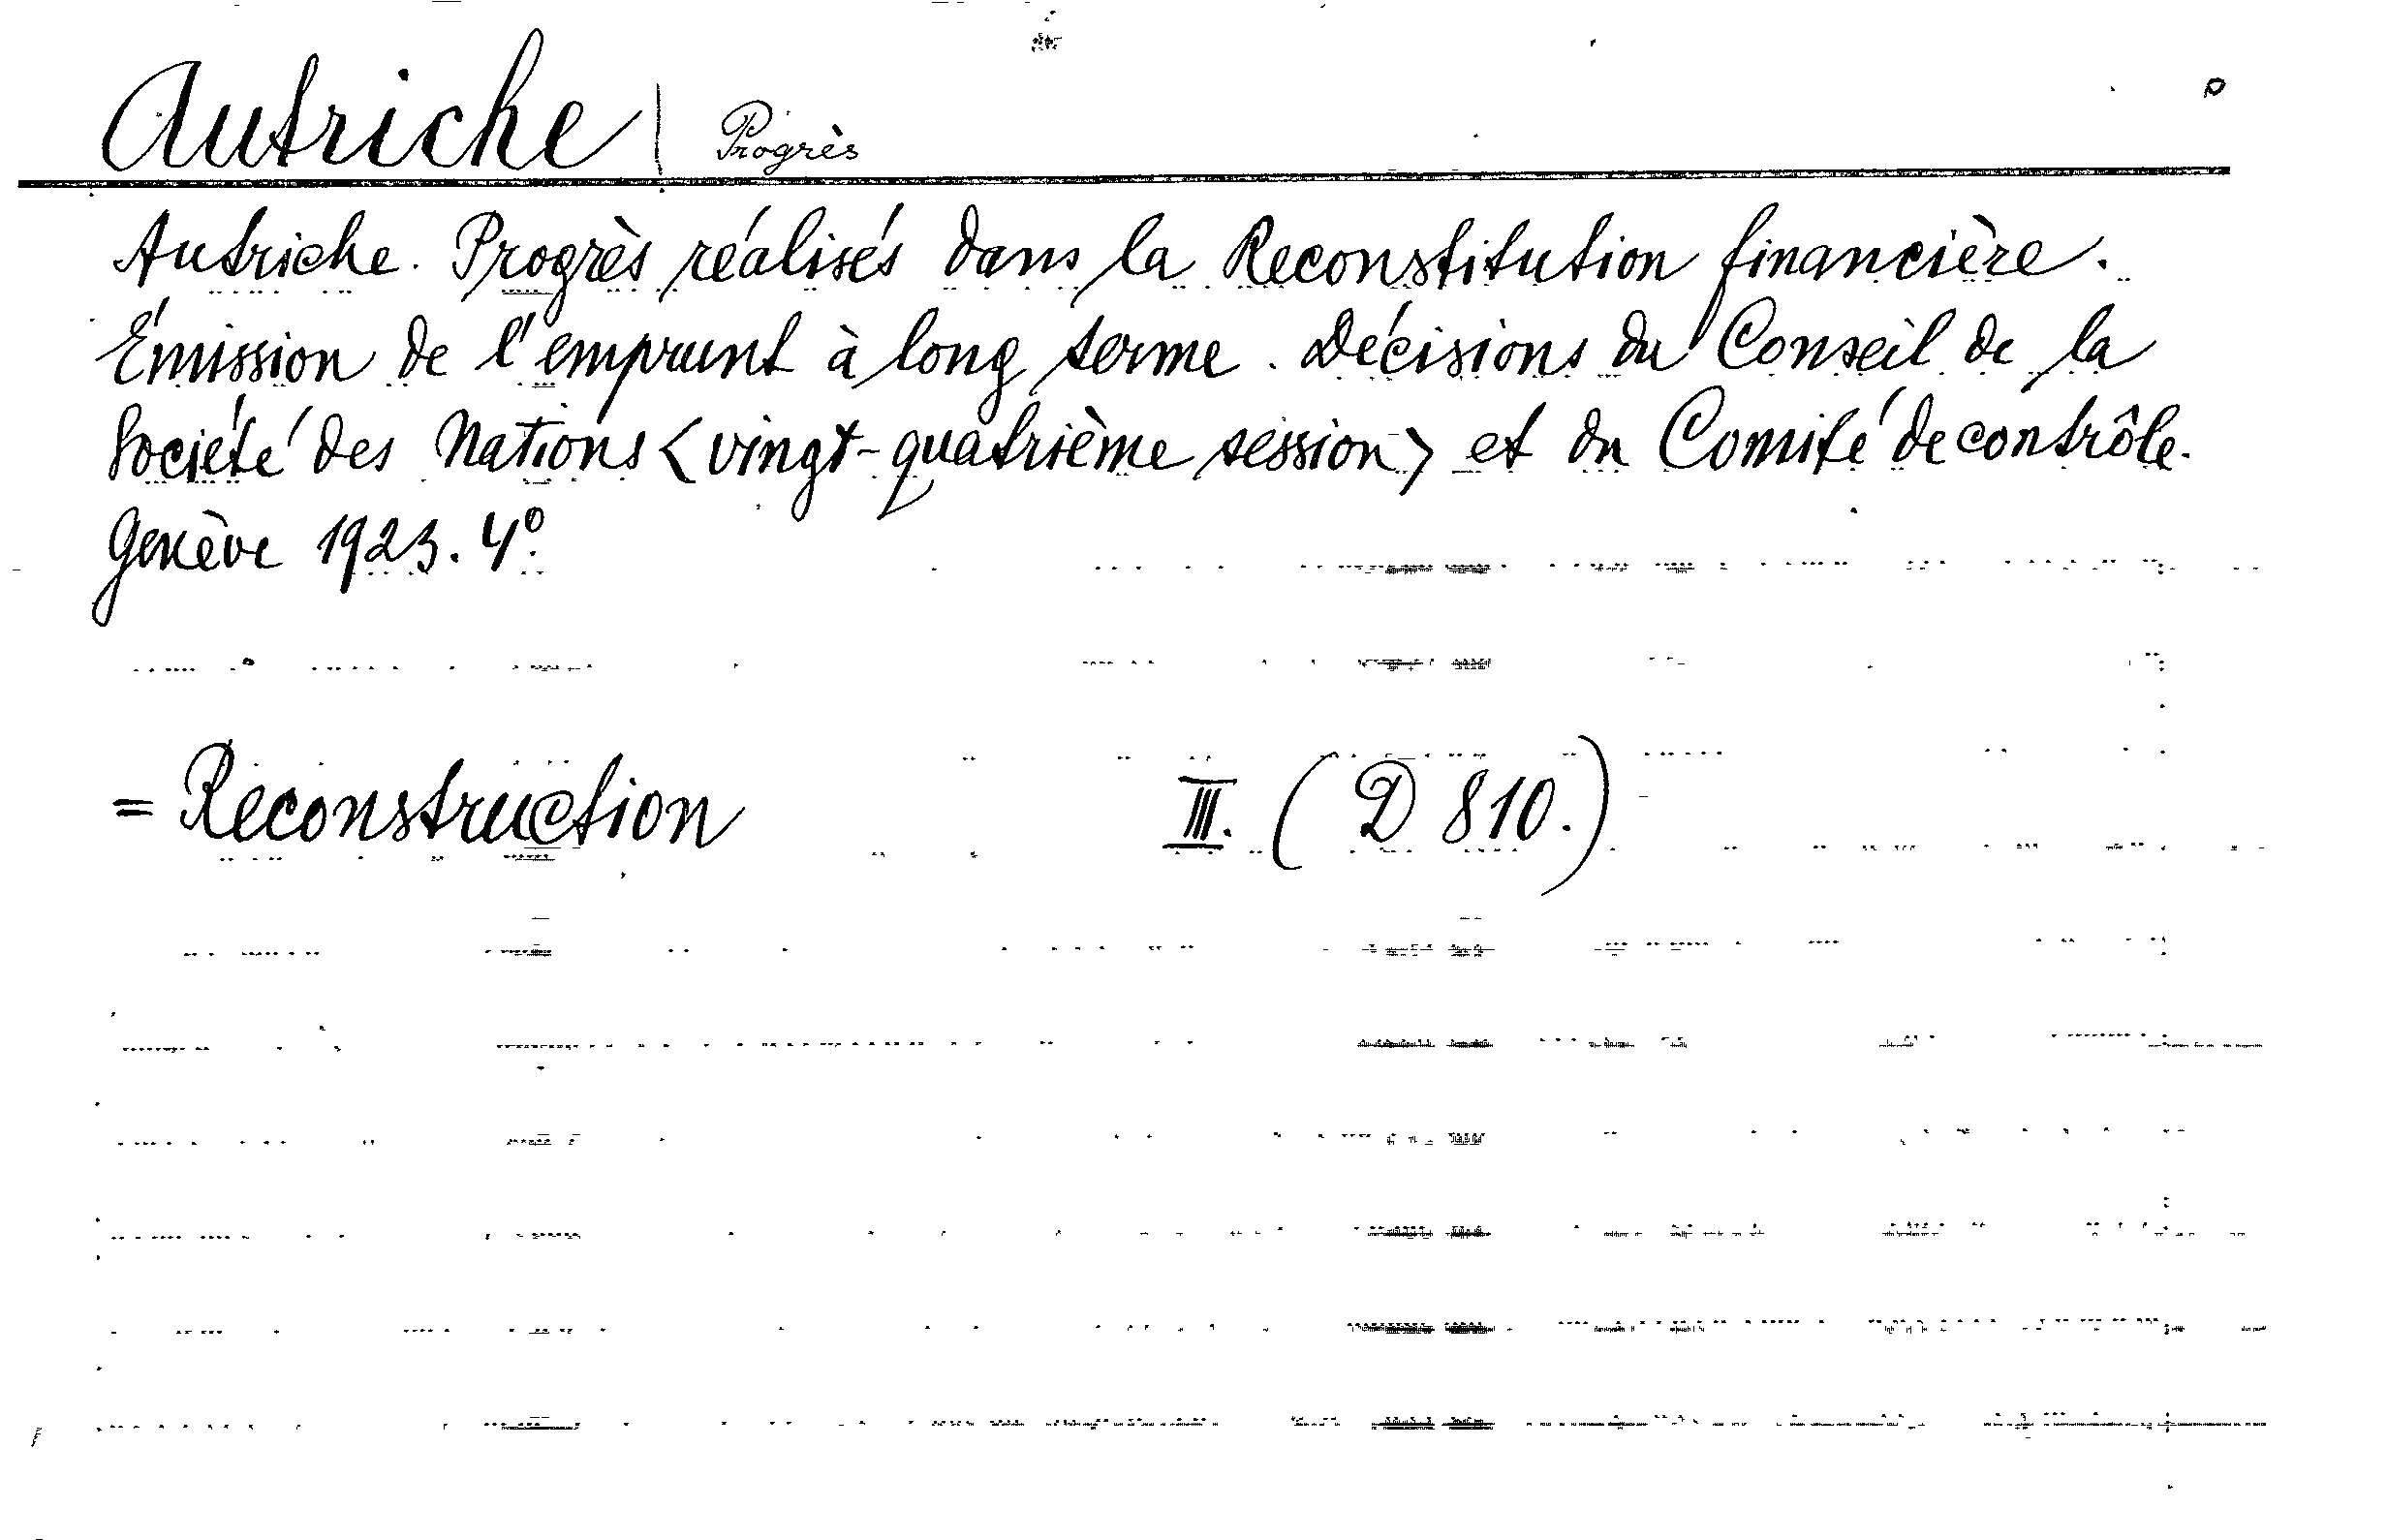 Autriche | Progrès
Autriche. Progrès réalisés dans la Reconstitution financière.
Émission de l'emprunt à long terme. Décisions du Conseil de la
Société des Nations <vingt-quatrième session> et du Comité de contrôle.
Genève 1923. 4°.
= Reconstruction III. (D 810.)